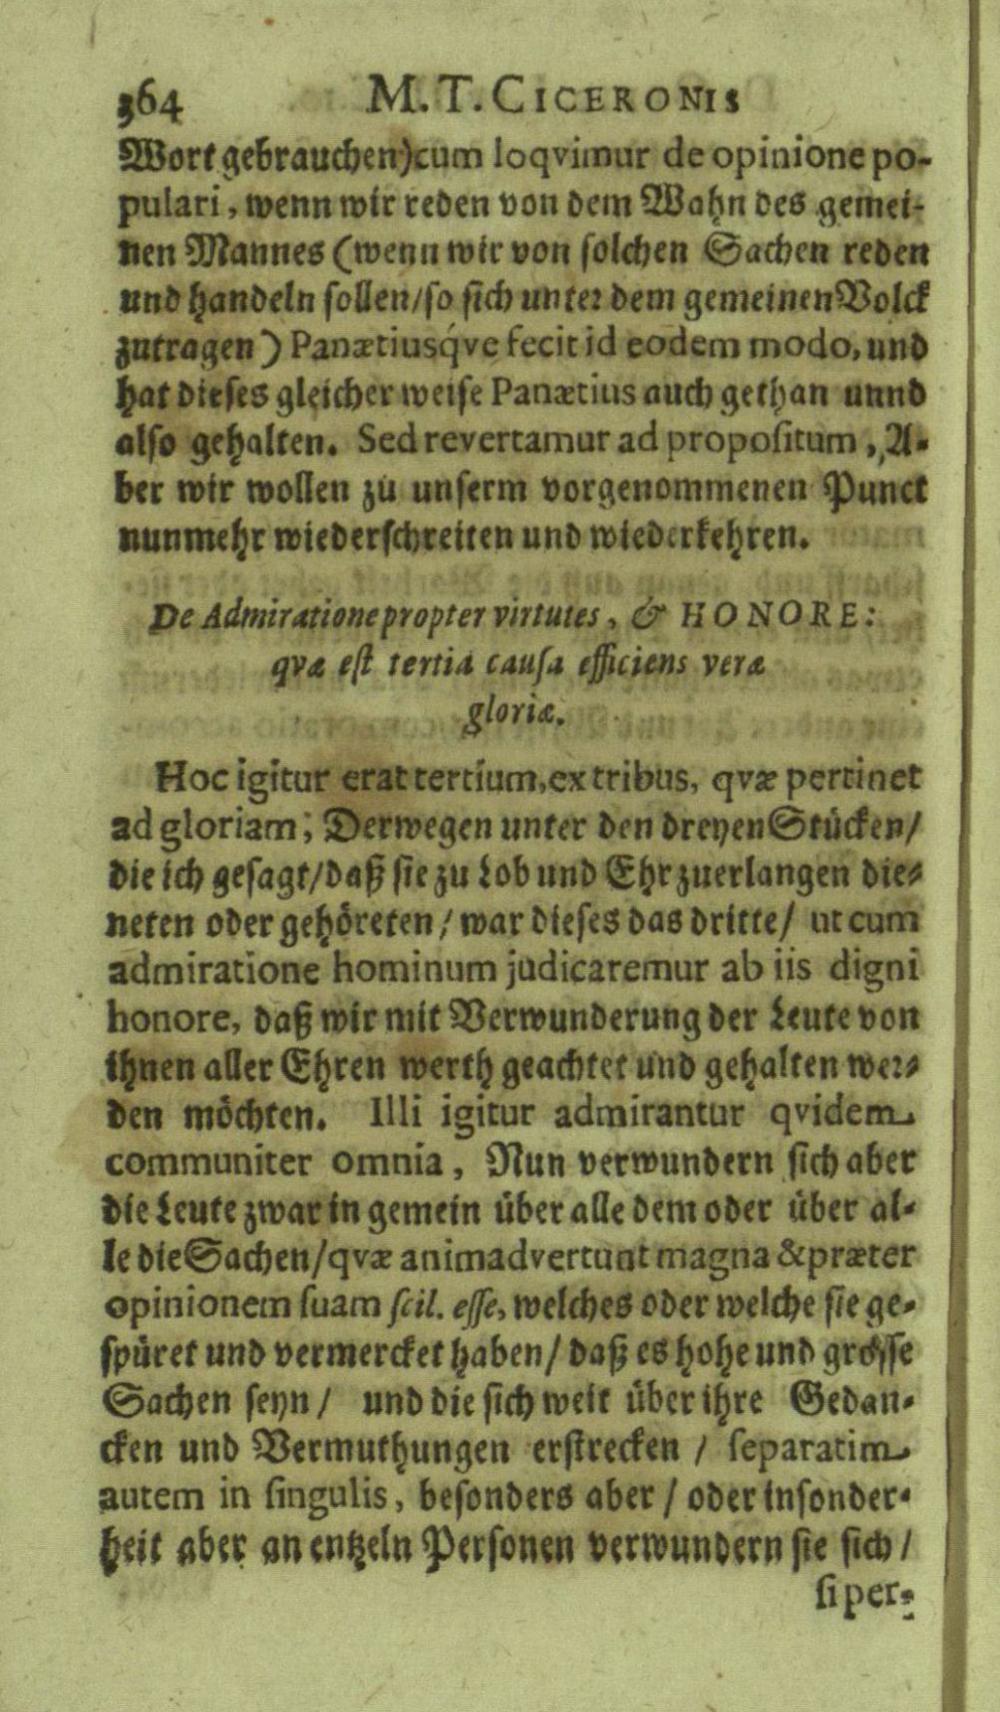 364 M. T. CICERONIS
Wort gebrauchen) cum loqvimur de opinione po-
pulari, wenn wir reden von dem Wahn des gemei-
nen Mannes (wenn wir von solchen Sachen reden
und handeln sollen/ so sich unter dem gemeinen Volck
zutragen) Panætiusq́ve fecit id eodem modo, und
hat dieses gleicher weise Panætius auch gethan unnd
also gehalten. Sed revertamur ad propositum, A-
ber wir wollen zu unserm vorgenommenen Punct
nunmehr wiederschreiten und wiederkehren.
De Admiratione propter virtutes, & HONORE:
qvæ est tertia causa efficiens veræ
gloriæ.
Hoc igitur erat tertium, ex tribus, qvæ pertinet
ad gloriam; Derwegen unter den dreyen Stücken/
die ich gesagt/ daß sie zu Lob und Ehr zuerlangen die-
neten oder gehöreten/ war dieses das dritte/ ut cum
admiratione hominum judicaremur ab iis digni
honore, daß wir mit Verwunderung der Leute von
ihnen aller Ehren werth geachtet und gehalten wer-
den möchten. Illi igitur admirantur qvidem
communiter omnia, Nun verwundern sich aber
die Leute zwar in gemein über alle dem oder über al-
le die Sachen/ qvæ animadvertunt magna & præter
opinionem suam scil. esse, welches oder welche sie ge-
spüret und vermercket haben/ daß es hohe und grosse
Sachen seyn/ und die sich weit über ihre Gedan-
cken und Vermuthungen erstrecken/ separatim
autem in singulis, besonders aber/ oder insonder-
heit aber an entzeln Personen verwundern sie sich/
si per-